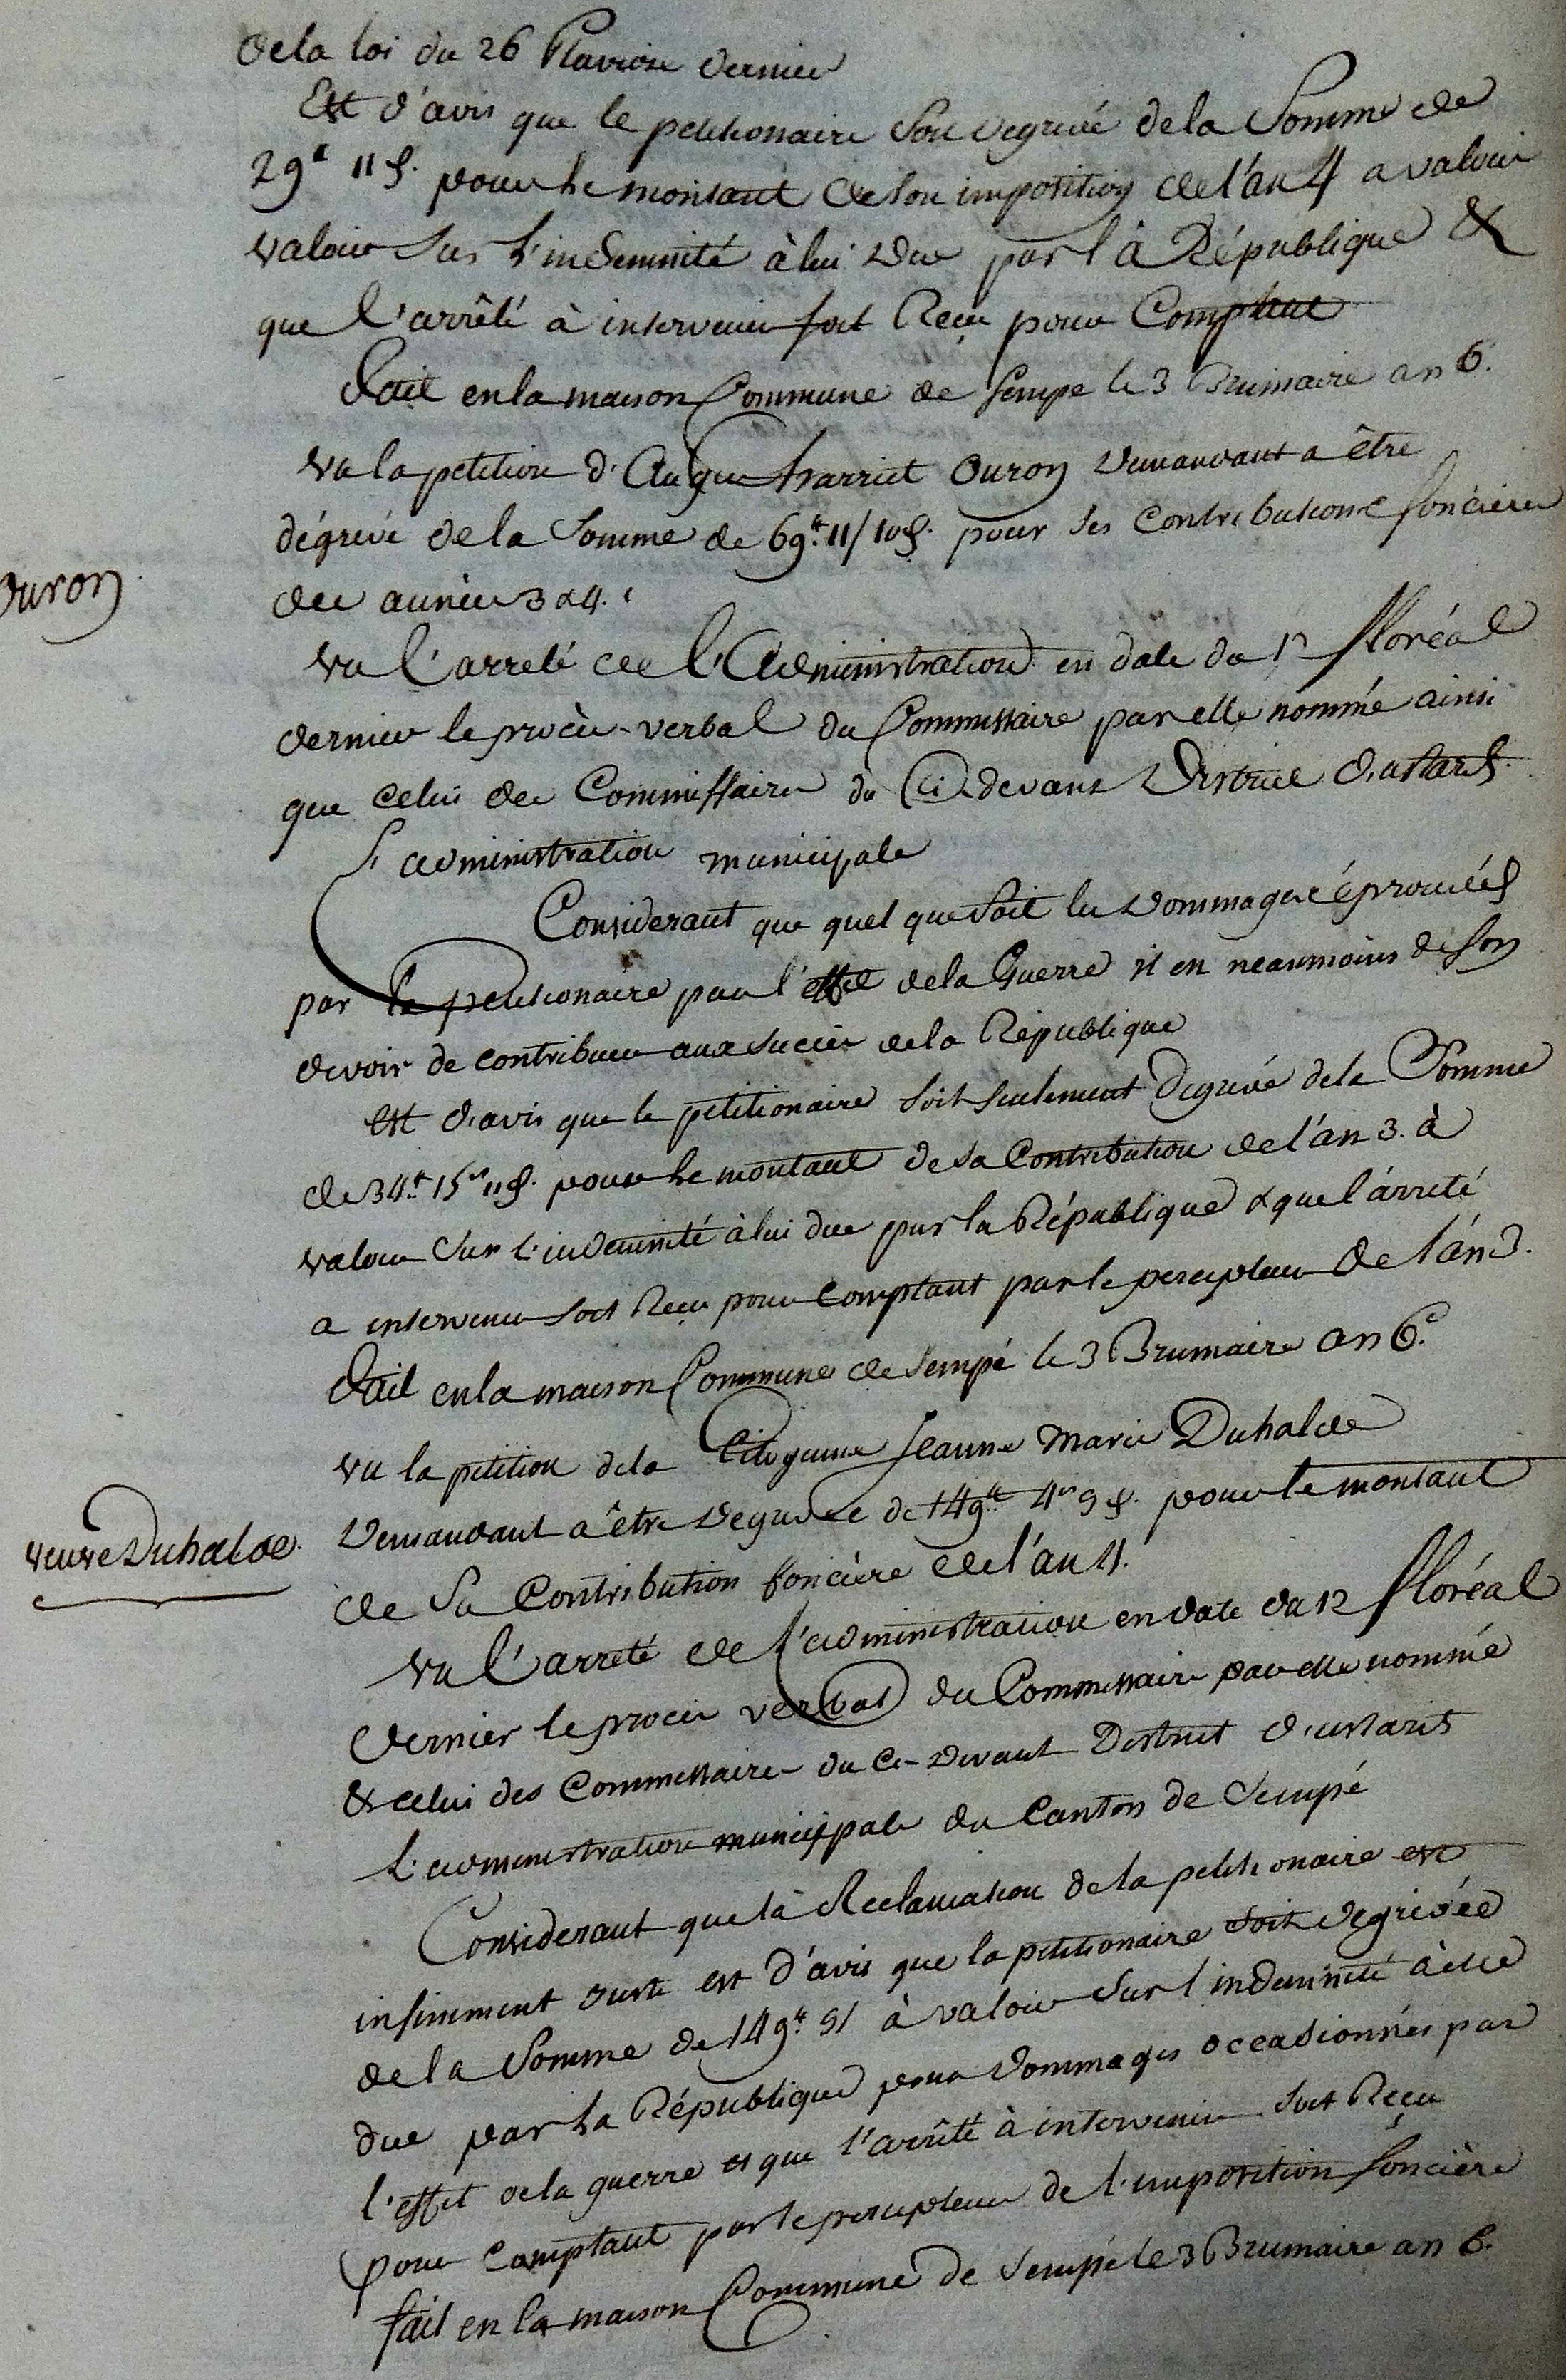 de la loi du 26 Pluviose dernier
Est d'avis que le petitionaire soit degrevé de la Somme de
29# 11 s. pour le montant de son imposition de l'an 4 a valoir
valoir sur l'indemnité à lui due par là République &
que l'arrêté à intervenir soit Reçu pour Comptant
Fait en la maison Commune de Sempe le 3 Brumaire an 6.
Vu la petition d' harriet Duron demandant a être
dégrevé de la Somme de 69# 11/10 s. pour ses Contributions foncieres
des années 3 & 4.
Duron
Vu l'arreté de l'Administration en date du 12 floréal
dernier le procès-verbal du Commissaire par elle nommé ainsi
que celui des Commissaires du Ci devant District d'ustarits
L'administration municipale
Considerant que quel que soit les dommages éprouvés
par le petitionaire par l'effet de la Guerre il est neanmoins de son
devoir de contribuer aux succès de la République
est d'avis que le petitionaire soit seulement degrevé de la Somme
de 34# 15 s 11 d. pour le montant de sa Contribution de l'an 3. à
valoir sur l'indemnité à lui due par la République & que l'arreté
a intervenir soit Reçu pour Comptant par le percepteur de l'an 3.
Fait en la maison Commune de Sempé le 3 Brumaire an 6.e
Vu la petition de la Citoyenne Jeanne Marie Duhalde
demandant a être degrevée de 149# 4 s 9 d. pour le montant
veuve Duhalde.
de Sa Contribution foncière de l'an 4.
Vu l'arreté de l'administration en date du 12 floréal
dernier le procès verbal du Commissaire par elle nommé
& celui des Commissaires du Ci-devant District d'ustarits
L'administration municipale du Canton de Sempé
Considerant que la Reclamation de la petitionaire est
infiniment juste est d'avis que la petitionaire soit degrevée
de la Somme de 149# à valoir sur l'indemnité à elle
due par la République pour dommages occasionnés par
l'effet de la guerre et que l'arrêté à intervenir soit Reçu
pour Comptant par le percepteur de l'imposition foncière
fait en la maison Commune de Sempé le 3 Brumaire an 6.